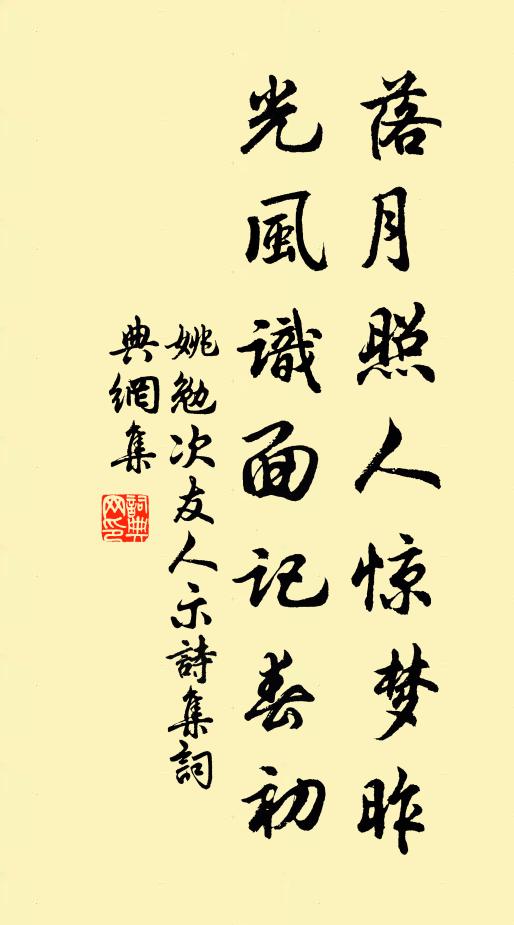 落月照人惊梦昨
光風識面記春初
姚勉次友人示詩集詞
典網集
詞典网印